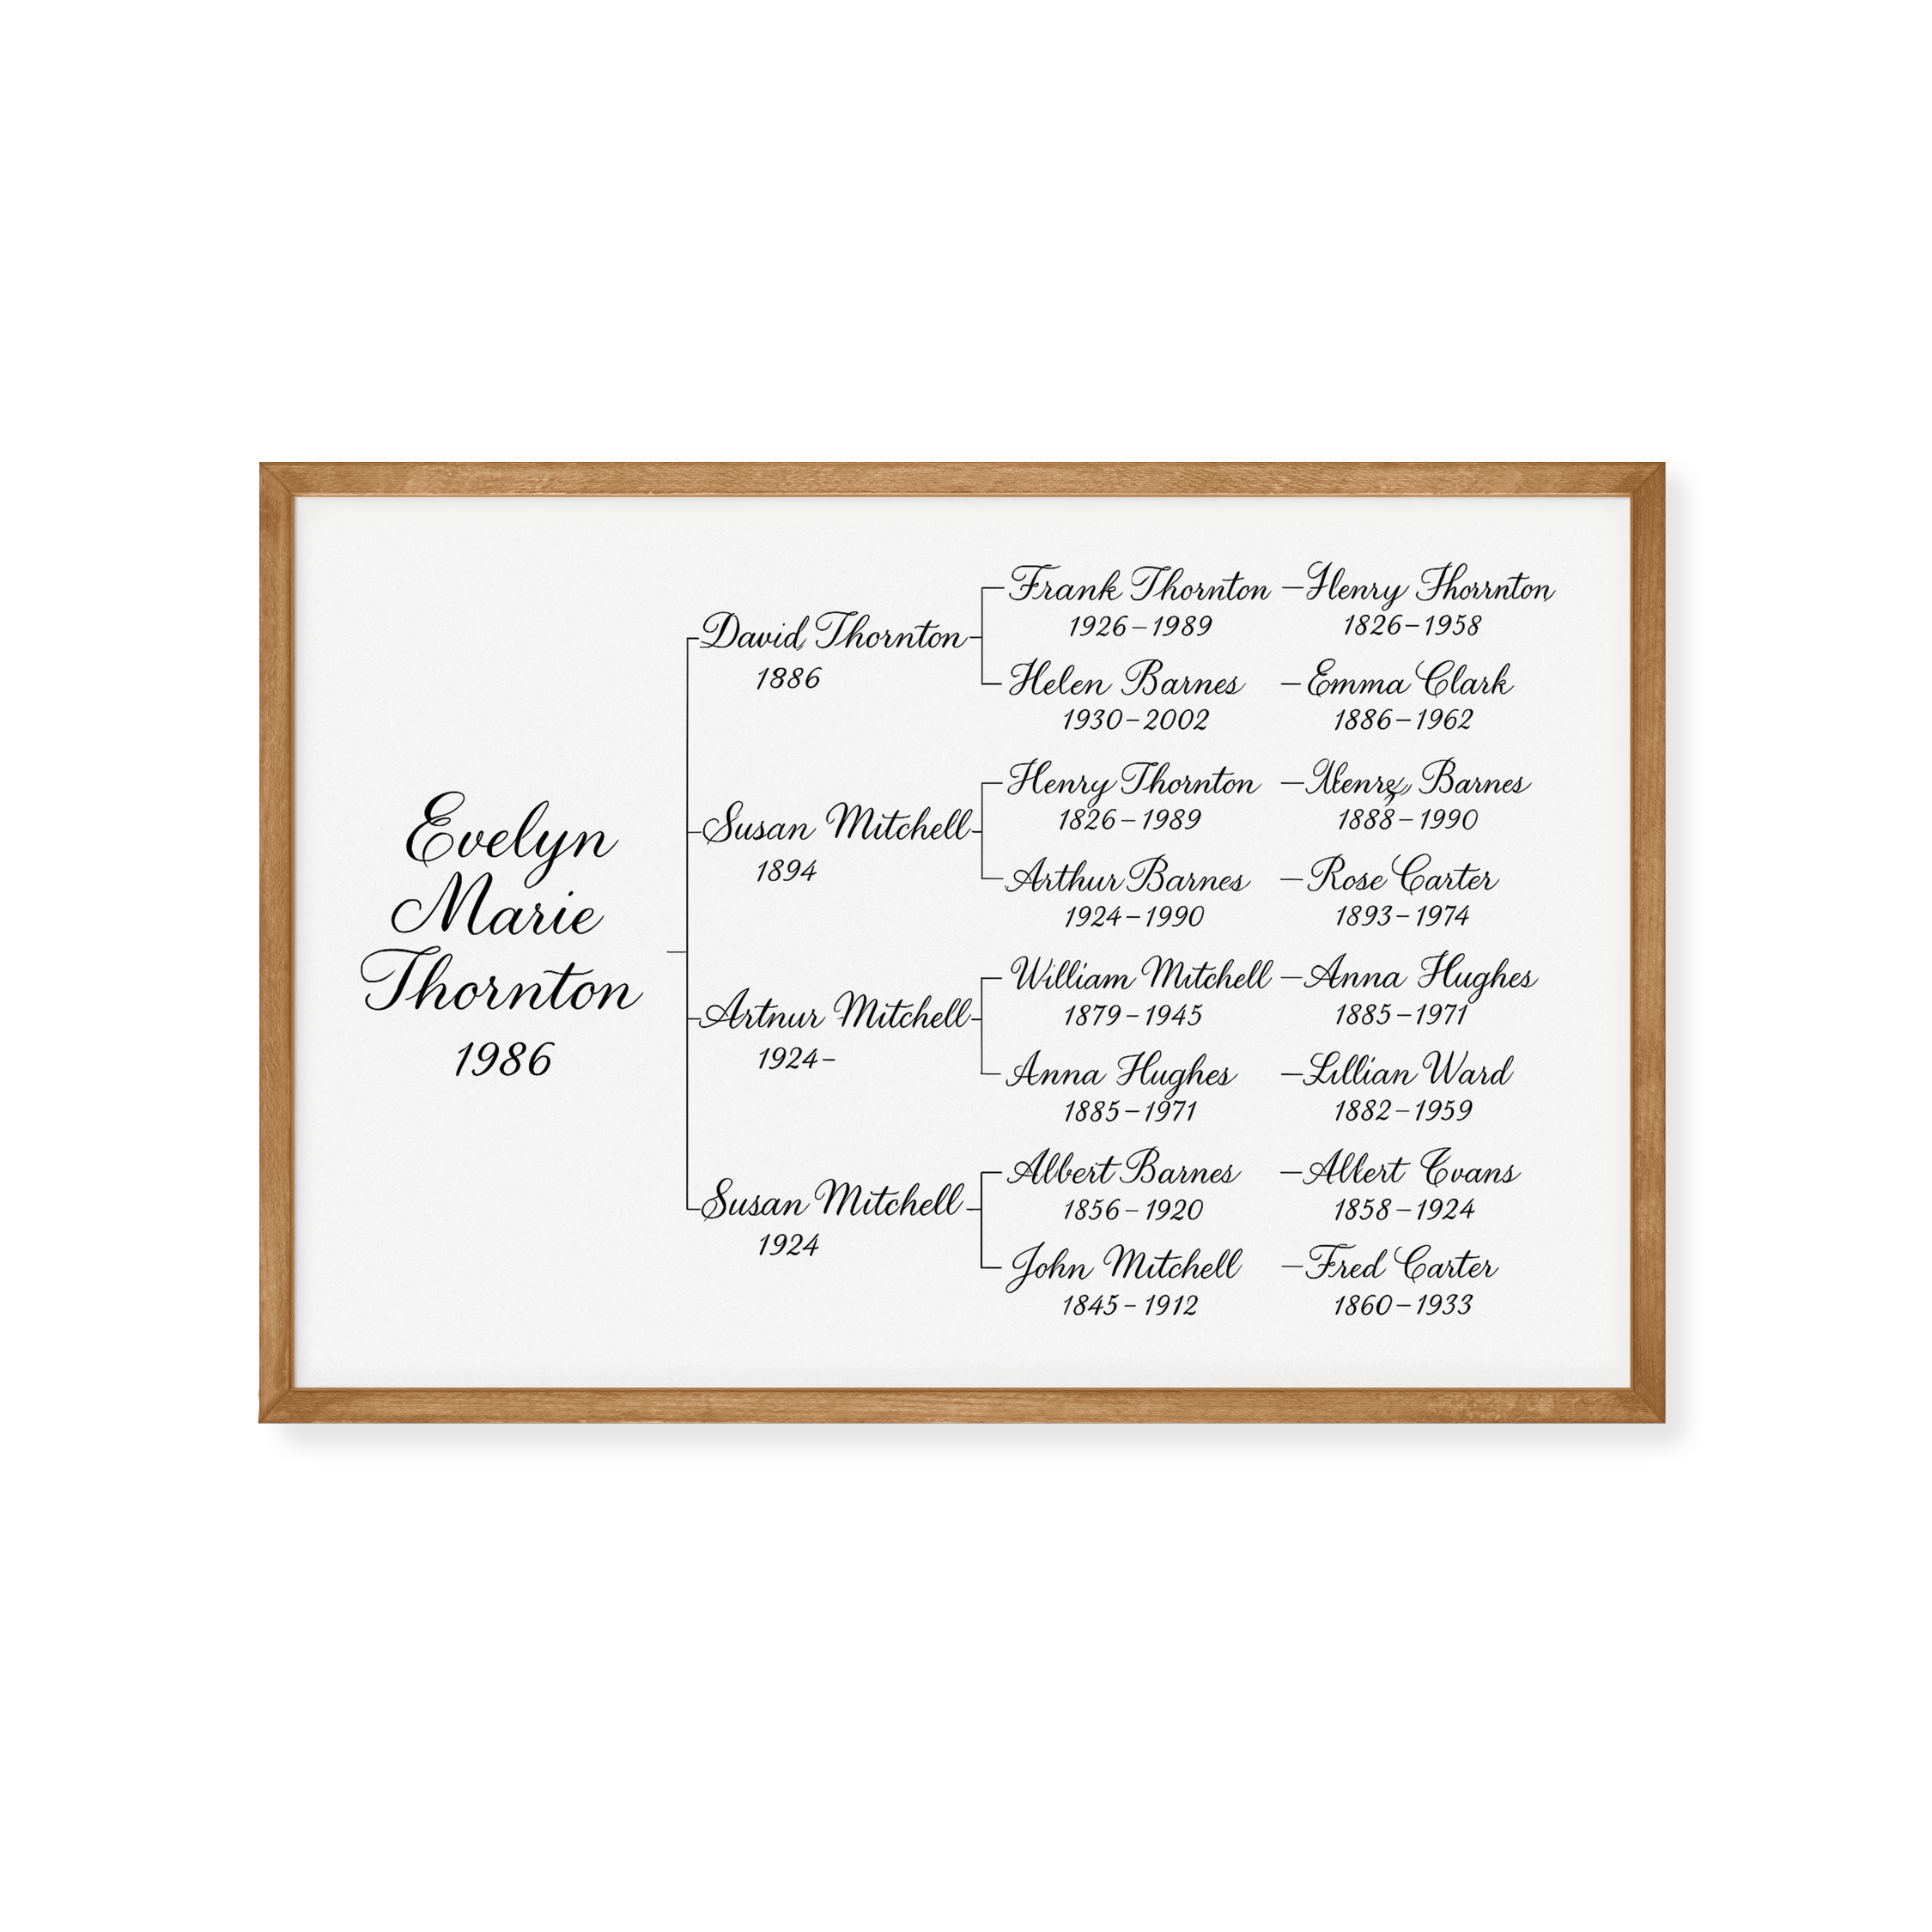 Evelyn
Marie
Thornton
1986
David Thornton
1886
Susan Mitchell
1894
Artnur Mitchell
1924–
Susan Mitchell
1924
Frank Thornton – Henry Thorrnton
1926–1989 1826–1958
Helen Barnes – Emma Clark
1930–2002 1886–1962
Henry Thornton – Barnes
1826–1989 1888–1990
Arthur Barnes – Rose Carter
1924–1990 1893–1974
William Mitchell – Anna Hughes
1879–1945 1885–1971
Anna Hughes – Lillian Ward
1885–1971 1882–1959
Albert Barnes – Evans
1856–1920 1858–1924
John Mitchell – Fred Carter
1845–1912 1860–1933